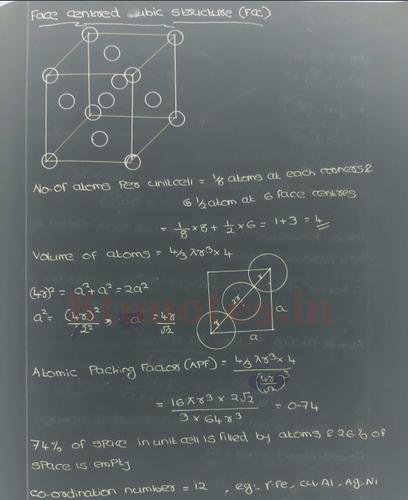 Face centred cubic structure (FCC)
No. of atoms per unitcell = 1/8 atoms at each corners &
6 1/2 atom at 6 face centres
= 1/8 × 8 + 1/2 × 6 = 1+3 = 4
Volume of atoms = 4/3 πr³ × 4
(4r)² = a²+a² = 2a²
a² = (4r)²/2² , a = 4r/√2
r
2r
r
a
a
Ktunotes.in
Atomic Packing Factor (APF) = 4/3 πr³ × 4 / (4r/√2)³
= 16πr³ × 2√2 / 3 × 64r³ = 0.74
74% of space in unit cell is filled by atoms & 26% of
space is empty
co-ordination number = 12 , eg:- r-Fe, Cu, Al, Ag, Ni